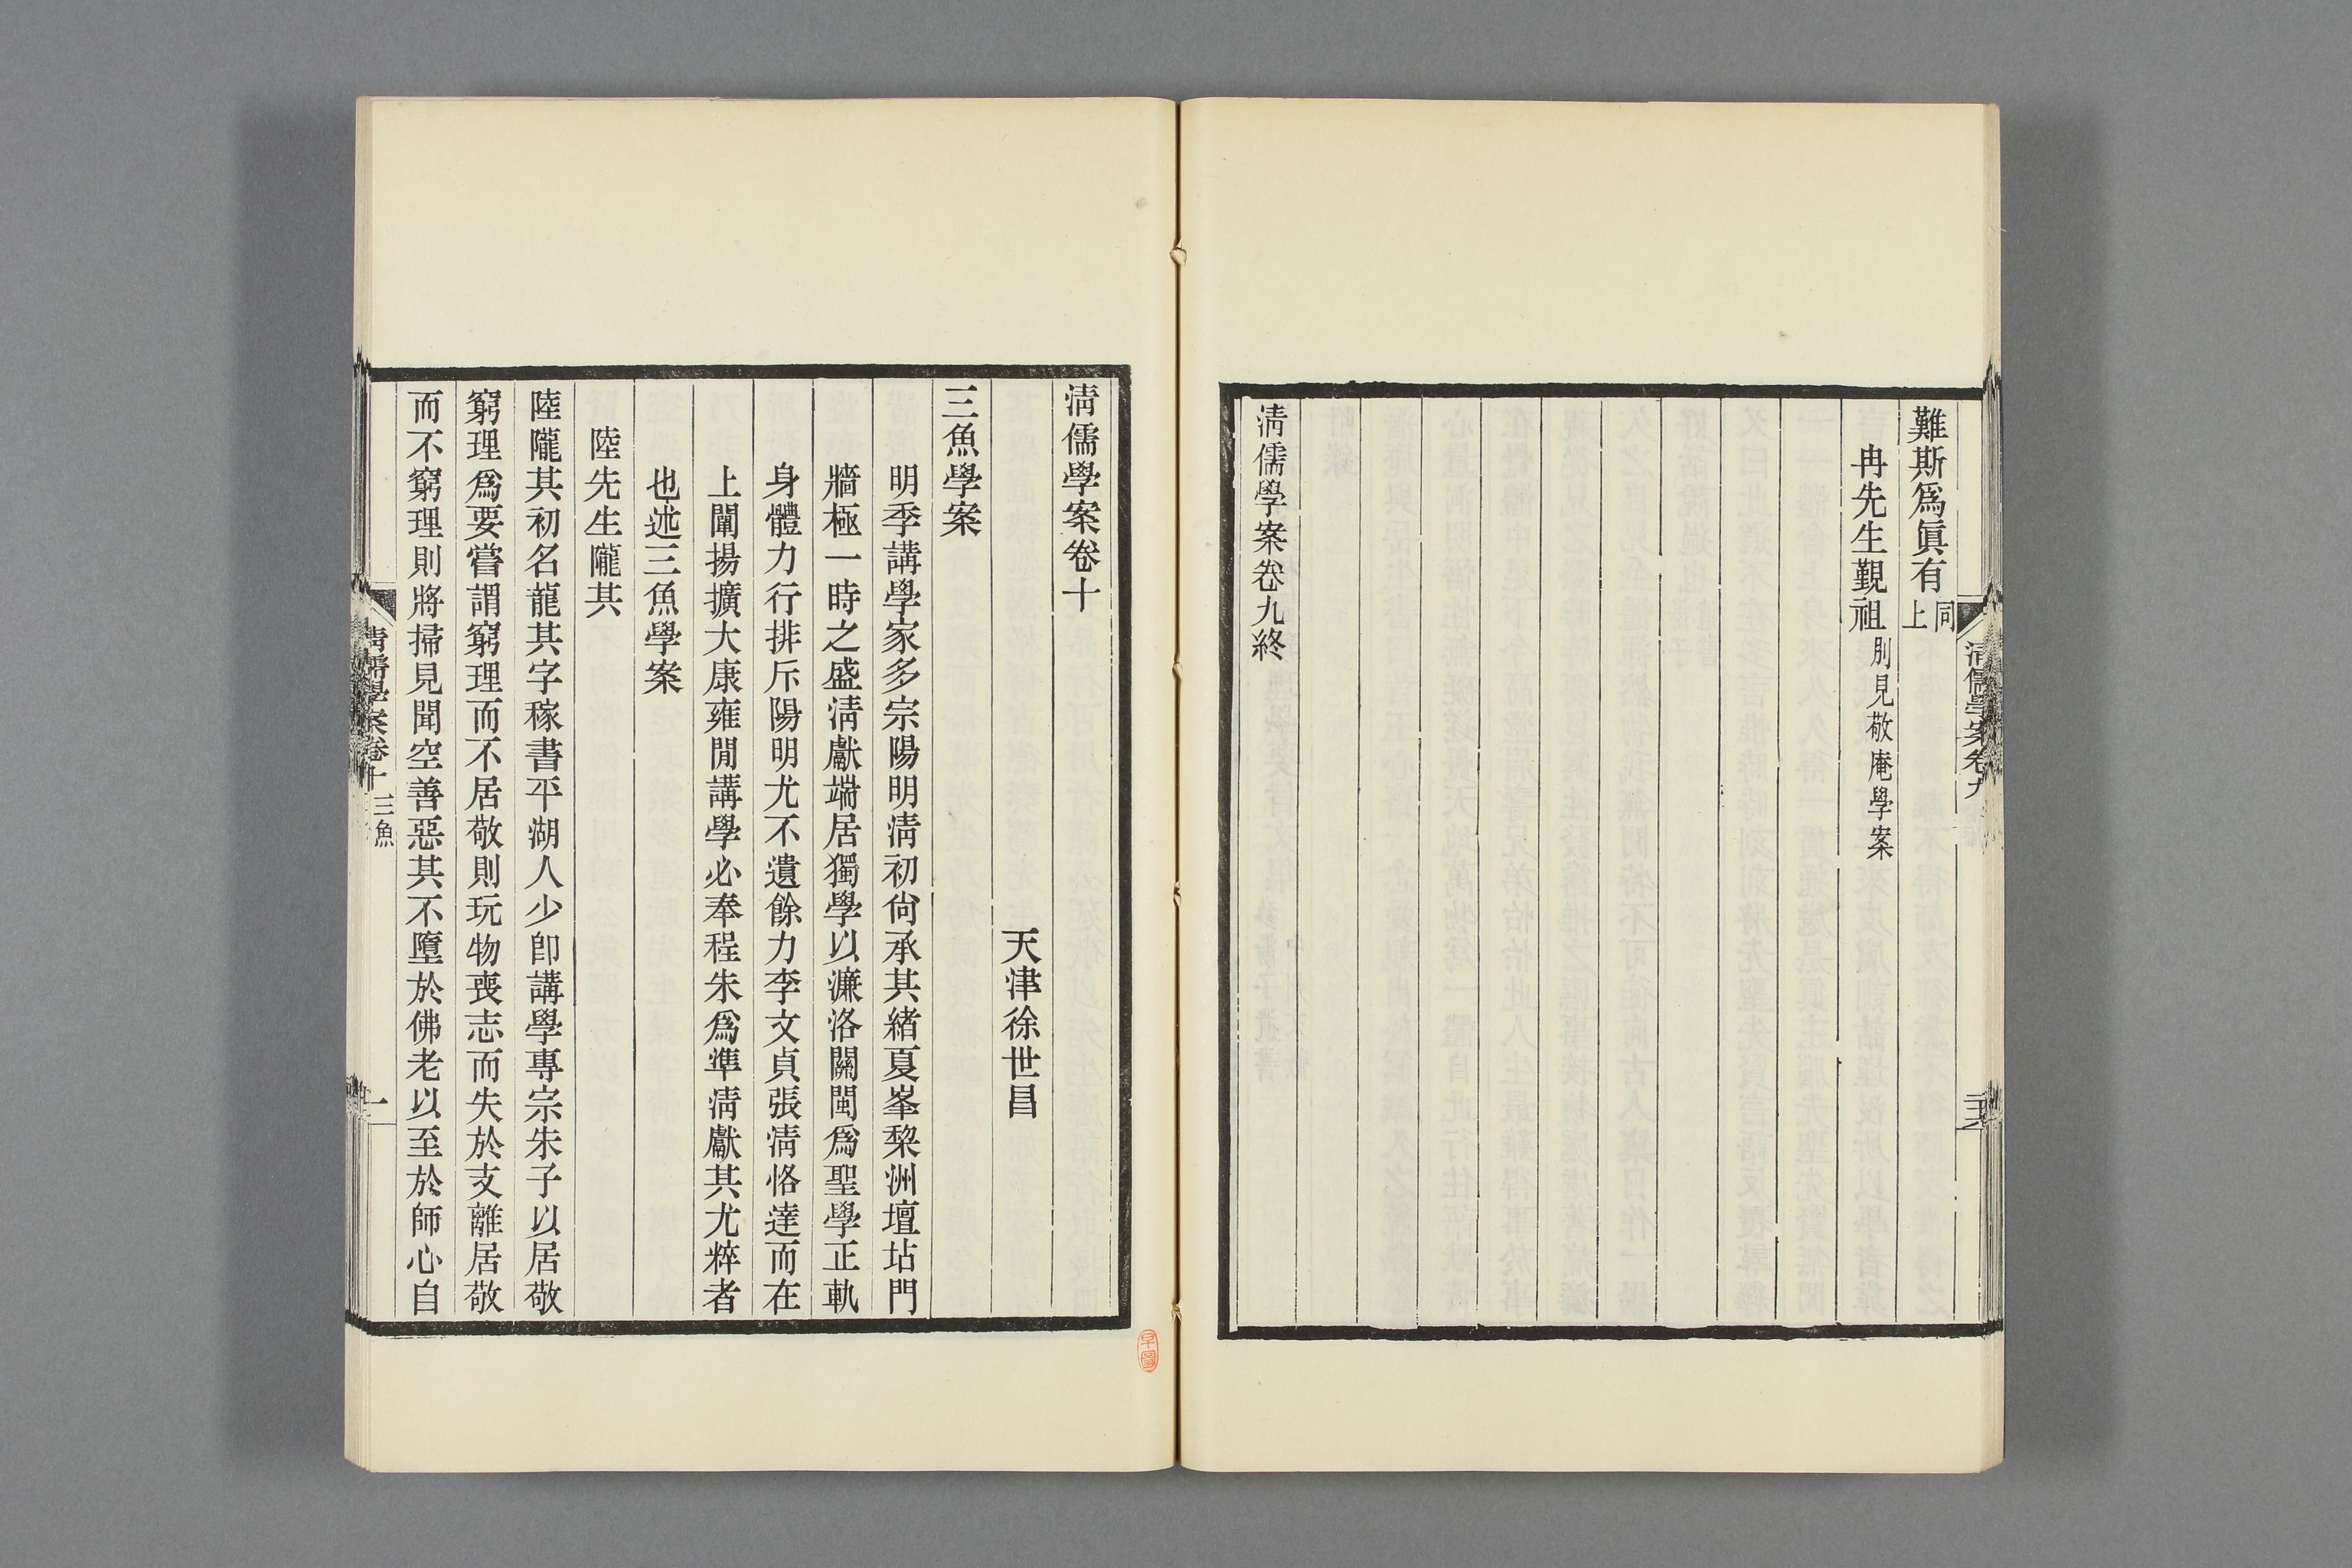 難斯爲眞有同上
冉先生覲祖別見敬庵學案
淸儒學案卷九終
淸儒學案卷九
淸儒學案卷十
天津徐世昌
三魚學案
明季講學家多宗陽明淸初尙承其緒夏峯棃洲壇坫門
牆極一時之盛淸獻端居獨學以濂洛關閩爲聖學正軌
身體力行排斥陽明尤不遺餘力李文貞張淸恪達而在
上闡揚擴大康雍閒講學必奉程朱爲準淸獻其尤粹者
也述三魚學案
陸先生隴其
陸隴其初名龍其字稼書平湖人少卽講學專宗朱子以居敬
窮理爲要嘗謂窮理而不居敬則玩物喪志而失於支離居敬
而不窮理則將掃見聞空善惡其不墮於佛老以至於師心自
淸儒學案卷十
三魚
一